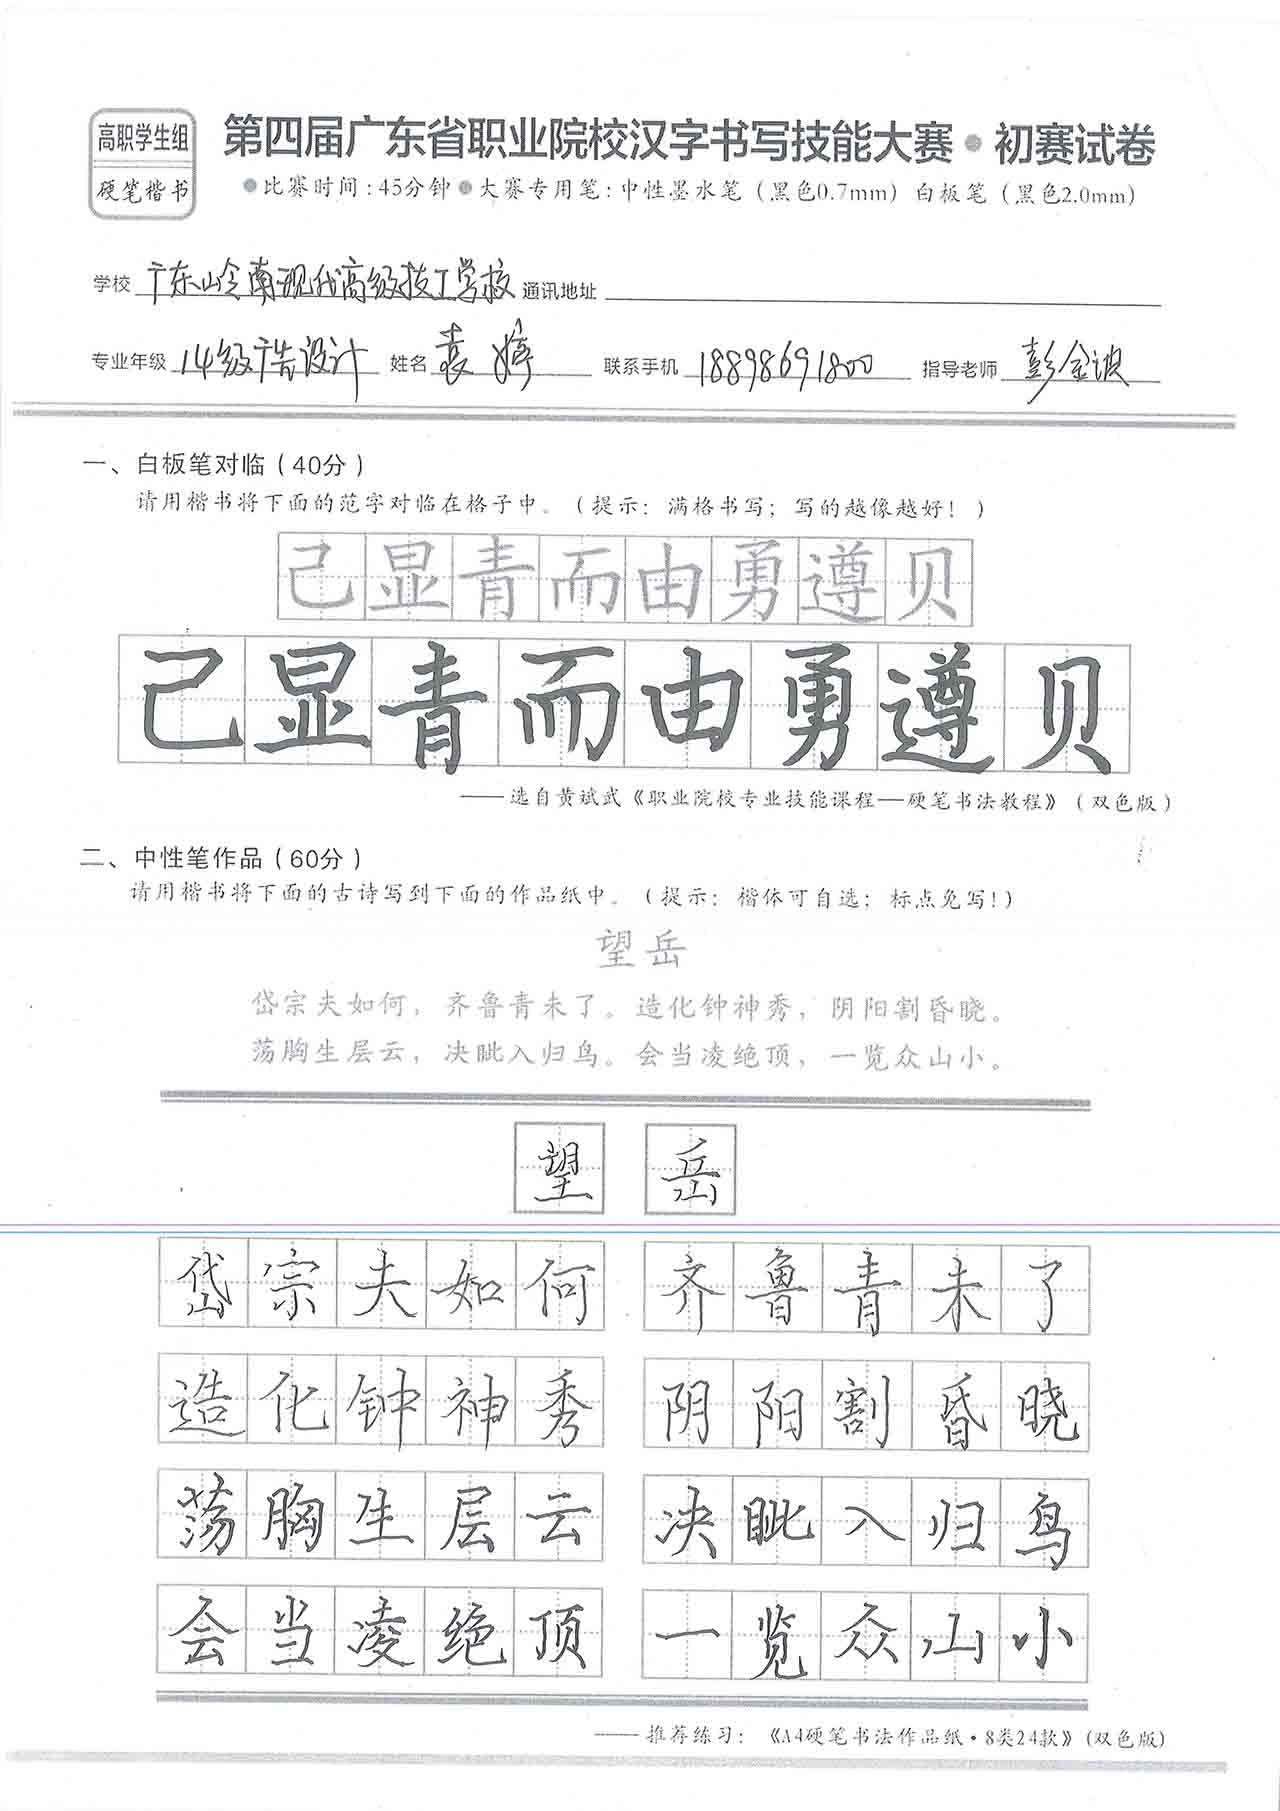 高职学生组
硬笔楷书
第四届广东省职业院校汉字书写技能大赛●初赛试卷
●比赛时间:45分钟●大赛专用笔:中性墨水笔（黑色0.7mm）白板笔（黑色2.0mm）
学校 广东岭南现代高级技工学校 通讯地址
专业年级 14级广告设计 姓名 袁婷 联系手机 18898691800 指导老师 彭金波
一、白板笔对临（40分）
请用楷书将下面的范字对临在格子中。（提示：满格书写；写的越像越好！）
己显青而由勇遵贝
己显青而由勇遵贝
——选自黄斌武《职业院校专业技能课程—硬笔书法教程》（双色版）
二、中性笔作品（60分）
请用楷书将下面的古诗写到下面的作品纸中。（提示：楷体可自选；标点免写！）
望岳
岱宗夫如何，齐鲁青未了。造化钟神秀，阴阳割昏晓。
荡胸生层云，决眦入归鸟。会当凌绝顶，一览众山小。
望岳
岱宗夫如何 齐鲁青未了
造化钟神秀 阴阳割昏晓
荡胸生层云 决眦入归鸟
会当凌绝顶 一览众山小
——推荐练习：《A4硬笔书法作品纸·8类24款》（双色版）